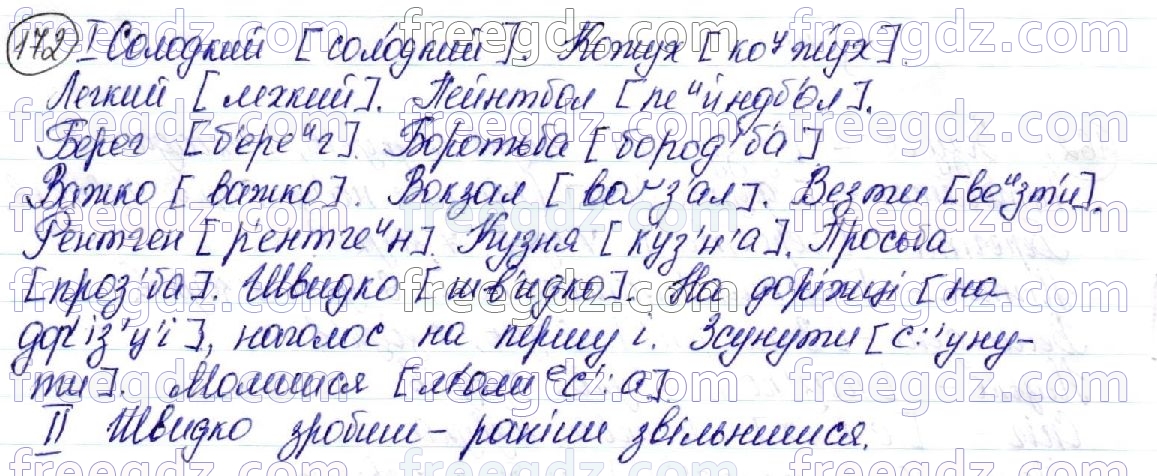 172 I Солодкий [солодкий]. Кожух [коᵘжух]
Легкий [лехкий]. Пейнтбол [пеᶦйндбол].
Берег [береᶦг]. Боротьба [бород'ба]
Важко [важко]. Вокзал [воґзал]. Везти [веᶦзти].
Рентген [рентгеᶦн]. Кузня [куз'н'а]. Просьба
[проз'ба]. Швидко [швидко]. На доріжці [на
дор'із'ц'і], наголос на першу і. Зсунути [с:уну-
ти]. Молишся [молиᵉс':а]
II Швидко зробиш - раніш звільнишся.